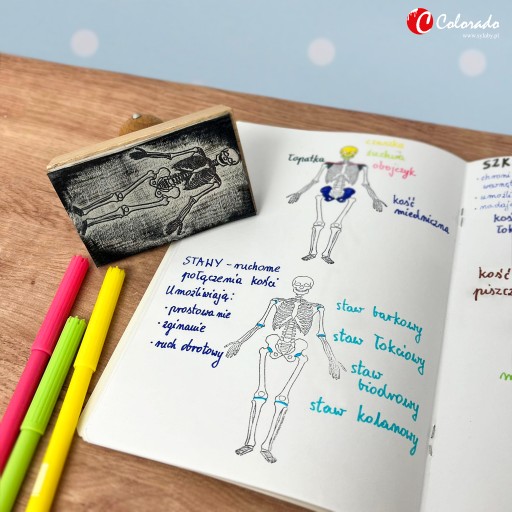 Colorado
czaszka
żuchwa
łopatka
obojczyk
kość
miedniczna
STAWY - ruchome
połączenia kości
Umożliwiają:
· prostowanie
· zginanie
· ruch obrotowy
staw barkowy
staw łokciowy
staw
biodrowy
staw kolanowy
SZK
· chroni
· umożli
kość
kość
piszcz